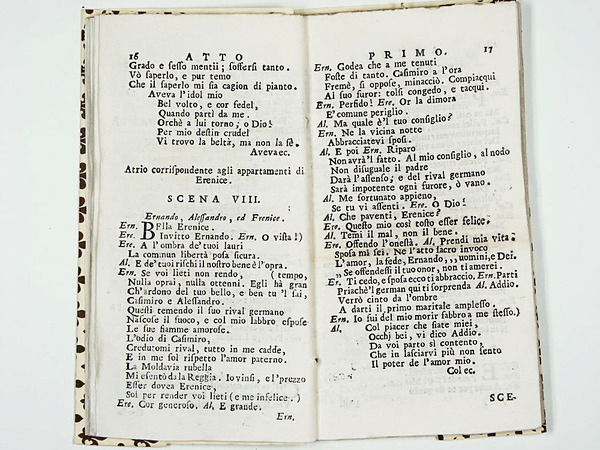 16 ATTO
Grado e sesso mentii; soffersi tanto.
Vò saperlo, e pur temo
Che il saperlo mi sia cagion di pianto.
Aveva l'idol mio
Bel volto, e cor fedel,
Quando partì da me.
Orchè a lui torno; o Dio!
Per mio destin crudel
Vi trovo la beltà, ma non la fè.
Avevaec.
Atrio corrispondente agli appartamenti di
Erenice.
SCENA VIII.
Ernando, Alessandro, ed Erenice.
Ern. BElla Erenice.
Ere. Invitto Ernando. Ern. O vista!)
Ere. A l'ombra de' tuoi lauri
La comun libertà posa sicura.
Al. E de' tuoi rischi il nostro bene è l'opra.
Ern. Se voi lieti non rendo, (tempo,
Nulla oprai, nulla ottenni. Egli hà gran
Ch'ardono del tuo bello, e ben tu 'l sai,
Casimiro e Alessandro.
Questi temendo il suo rival germano
Nascose il fuoco, e col mio labbro espose
Le sue fiamme amorose.
L'odio di Casimiro,
Credutomi rival, tutto in me cadde,
E in me sol rispettò l'amor paterno.
La Moldavia rubella
Mi esentò da la Reggia. Io vinsi, e l'prezzo
Esser dovea Erenice,
Sol per render voi lieti (e me infelice.)
Ere. Cor generoso. Al. E grande.
Ern.
PRIMO. 17
Ern. Godea che a me tenuti
Foste di tanto. Casimiro a l'ora
Fremè, si oppose, minacciò. Compiacqui
Al suo furor: tolsi congedo, e tacqui.
Ern. Perfido! Ere. Or la dimora
E' comune periglio.
Al. Ma quale è'l tuo consiglio?
Ern. Ne la vicina notte
Abbracciatevi sposi.
Al. E poi Ern. Riparo
Non avrà'l fatto. Al mio consiglio, al nodo
Non disuguale il padre
Darà l'assenso; e del rival germano
Sarà impotente ogni furore, ò vano.
Al. Me fortunato appieno,
Se tu vi assenti. Ere. O Dio!
Al. Che paventi, Erenice?
Ere. Questo mio così tosto esser felice.
Al. Temi il mal, non il bene.
Ere. Offendo l'onestà. Al. Prendi mia vita:
Sposa mi sei. Ne l'atto sacro invoco
L'amor, la fede, Ernando,,,uomini,e Dei.
„Se offendessi il tuo onor, non ti amerei.
Er. Ti cedo, e sposa ecco ti abbraccio. Ern. Parti
Priachè'l german qui ti sorprenda Al. Addio.
Verrò cinto da l'ombre
A darti il primo maritale amplesso.
Ern. Io fui del mio morir fabbro a me stesso.)
Al. Col piacer che siate miei,
Occhj bei, vi dico Addio.
Da voi parto sì contento,
Che in lasciarvi più non sento
Il poter de l'amor mio.
Col ec.
SCE-